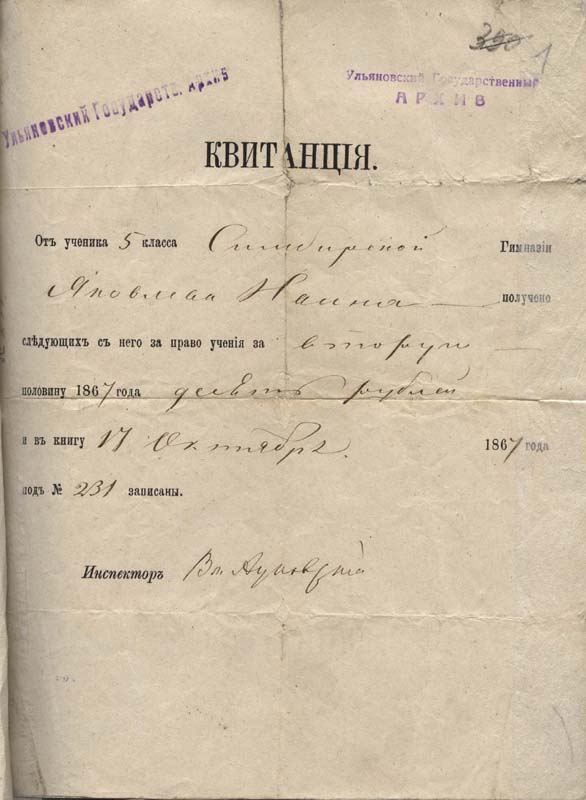 350 1
Ульяновский Государств. Архив
Ульяновский Государственный
АРХИВ
КВИТАНЦІЯ.
Отъ ученика 5 класса Симбирской Гимназіи
Яковлева Ивана получено
слѣдующихъ съ него за право ученія за вторую
половину 1867 года десять рублей
и въ книгу 17 Октября 1867 года
подъ № 231 записаны.
Инспекторъ Вл. Ауновскій